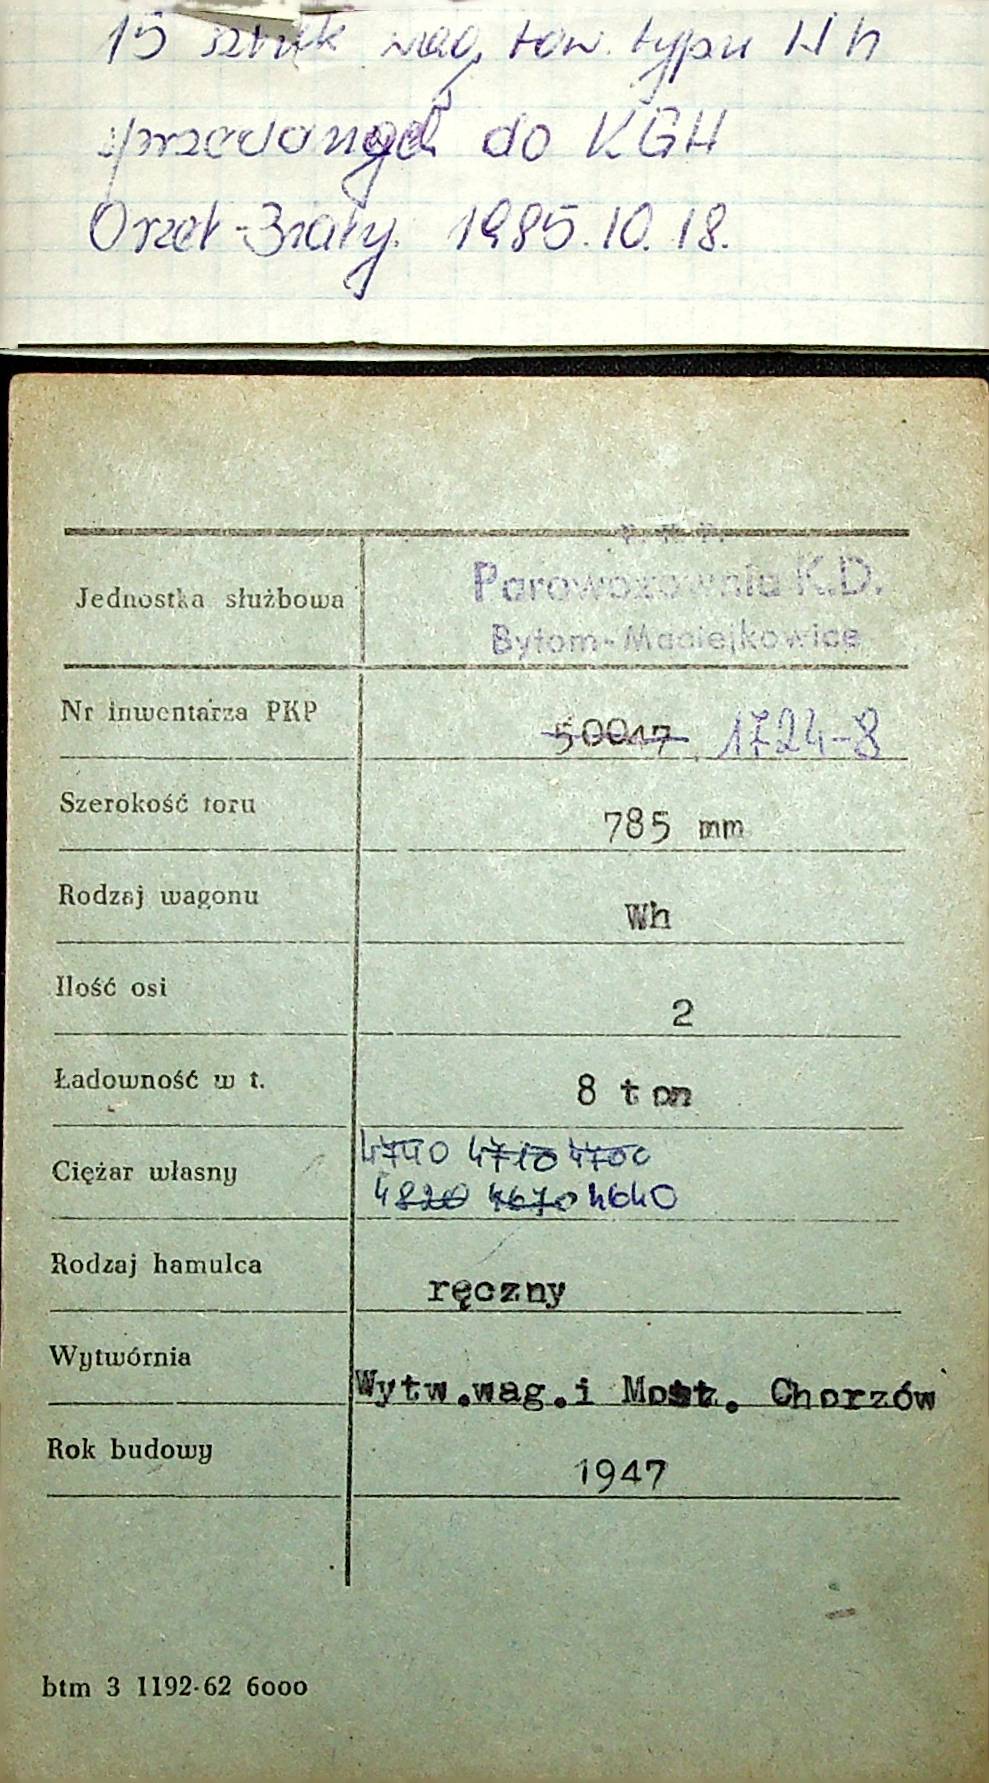 15 sztuk wag. tow. typu Wh
sprzedanych do KGH
Orzeł-Biały. 1985.10.18.
P. K. P.
Jednostka służbowa Parowozownia K.D.
Bytom-Maciejkowice
Nr inwentarza PKP 50047 1724-8
Szerokość toru 785 mm
Rodzaj wagonu Wh
Ilość osi 2
Ładowność w t. 8 ton
4740 4710 4700
Ciężar własny 4820 4670 4640
Rodzaj hamulca ręczny
Wytwórnia Wytw.wag.i Most. Chorzów
Rok budowy 1947
btm 3 1192-62 6000